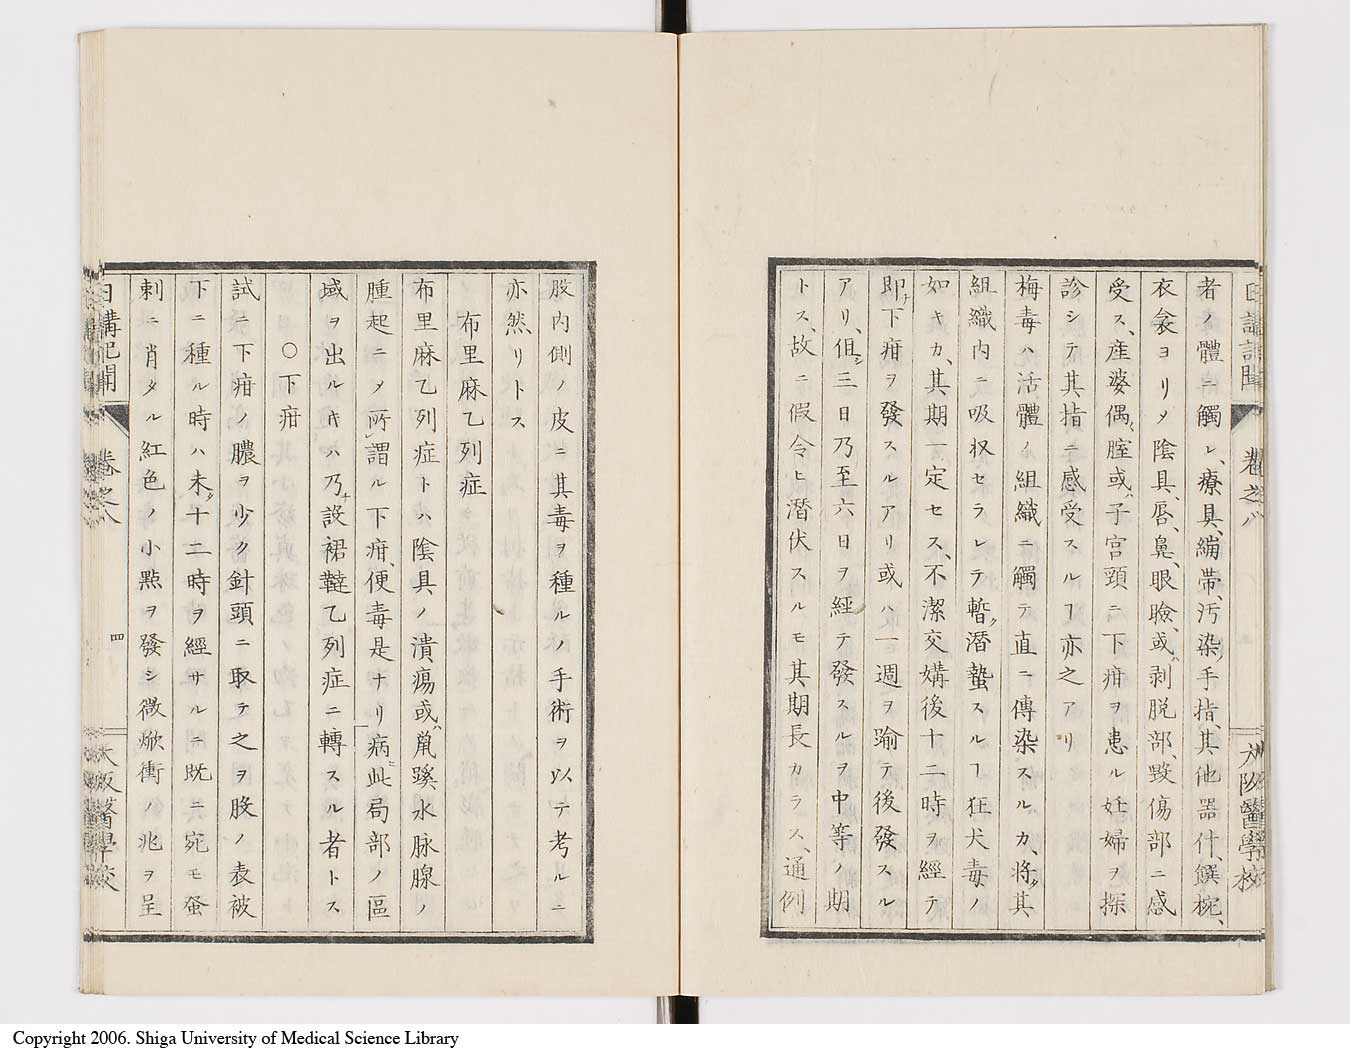 者ノ體ニ觸レ、療具、繃帶、汚染ノ手指、其他器什、饌椀、
衣衾ヨリメ陰具、唇、鼻、眼瞼、或ハ剥脱部、毀傷部ニ感
受ス、産婆偶〻腟或ハ子宮頸ニ下疳ヲ患ル妊婦ヲ探
診シテ其指ニ感受スルヿ亦之アリ
梅毒ハ活體ノ組織ニ觸テ直ニ傳染スルカ、將タ其
組織内ニ吸収セラレテ暫ク潜蟄スルヿ狂犬毒ノ
如キカ、其期一定セス、不潔交媾後十二時ヲ經テ
即チ下疳ヲ發スルアリ或ハ一週ヲ踰テ後發スル
アリ、但シ三日乃至六日ヲ經テ發スルヲ中等ノ期
トス、故ニ假令ヒ潜伏スルモ其期長カラス、通例
日講記聞 卷之八 大阪醫學校
股内側ノ皮ニ其毒ヲ種ルノ手術ヲ以テ考ルニ
亦然リトス
布里麻乙列症
布里麻乙列症トハ陰具ノ潰瘍或ハ鼠蹊水脉腺ノ
腫起ニメ所謂ル下疳、便毒是ナリ病此局部ノ區
域ヲ出ルキハ乃チ設裙韃乙列症ニ轉スル者トス
〇下疳
試ニ下疳ノ膿ヲ少ク針頭ニ取テ之ヲ股ノ表被
下ニ種ル時ハ未タ十二時ヲ經サルニ既ニ宛モ蚤
刺ニ肖タル紅色ノ小點ヲ發シ微焮衝ノ兆ヲ呈
日講記聞 卷之八 四 大阪醫學校
Copyright 2006. Shiga University of Medical Science Library